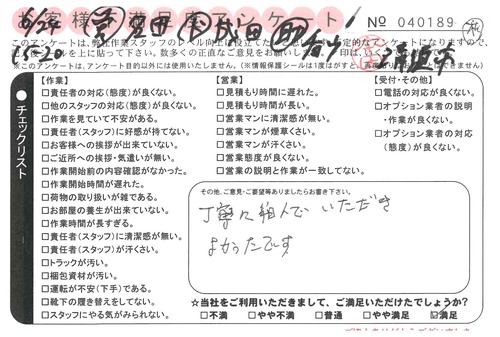 お客様満足度アンケート!
No 040189
このアンケートは、弊社作業スタッフのレベル向上に役立てた
定的なアンケートになりますので、
数多くの正直なご意見をお願い
※このアンケートは、アンケート目的以外には使用いたしません。(※情報保護シールは1度はがすと、
チェックリスト
【作業】
□責任者の対応(態度)が良くない。
□他のスタッフの対応(態度)が良くない。
□作業を見ていて不安がある。
□責任者(スタッフ)に好感が持てない。
□お客様への挨拶が出来ていない。
□ご近所への挨拶・気遣いが無い。
□作業開始前の内容確認がなかった。
□作業開始時間が遅れた。
□荷物の取り扱いが雑である。
□お部屋の養生が出来ていない。
□作業時間が長すぎる。
□責任者(スタッフ)に清潔感が無い。
□責任者(スタッフ)が汗くさい。
□トラックが汚い。
□梱包資材が汚い。
□運転が不安(下手)である。
□靴下の履き替えをしてない。
□スタッフにやる気がみられない。
【営業】
□見積もり時間に遅れた。
□見積もり時間が長い。
□営業マンに清潔感が無い。
□営業マンが煙草くさい。
□営業マンが汗くさい。
□営業態度が良くない。
□営業の説明と作業が一致してない。
【受付・その他】
□電話の対応が良くない。
□オプション業者の説明
・作業が良くない。
□オプション業者の対応
(態度)が良くない。
その他、ご意見・ご要望等ありましたらお書き下さい。
丁寧に組んでいただき
よかったです
☆当社をご利用いただきまして、ご満足いただけたでしょうか?
□不満 □やや不満 □普通 □やや満足 ☑満足